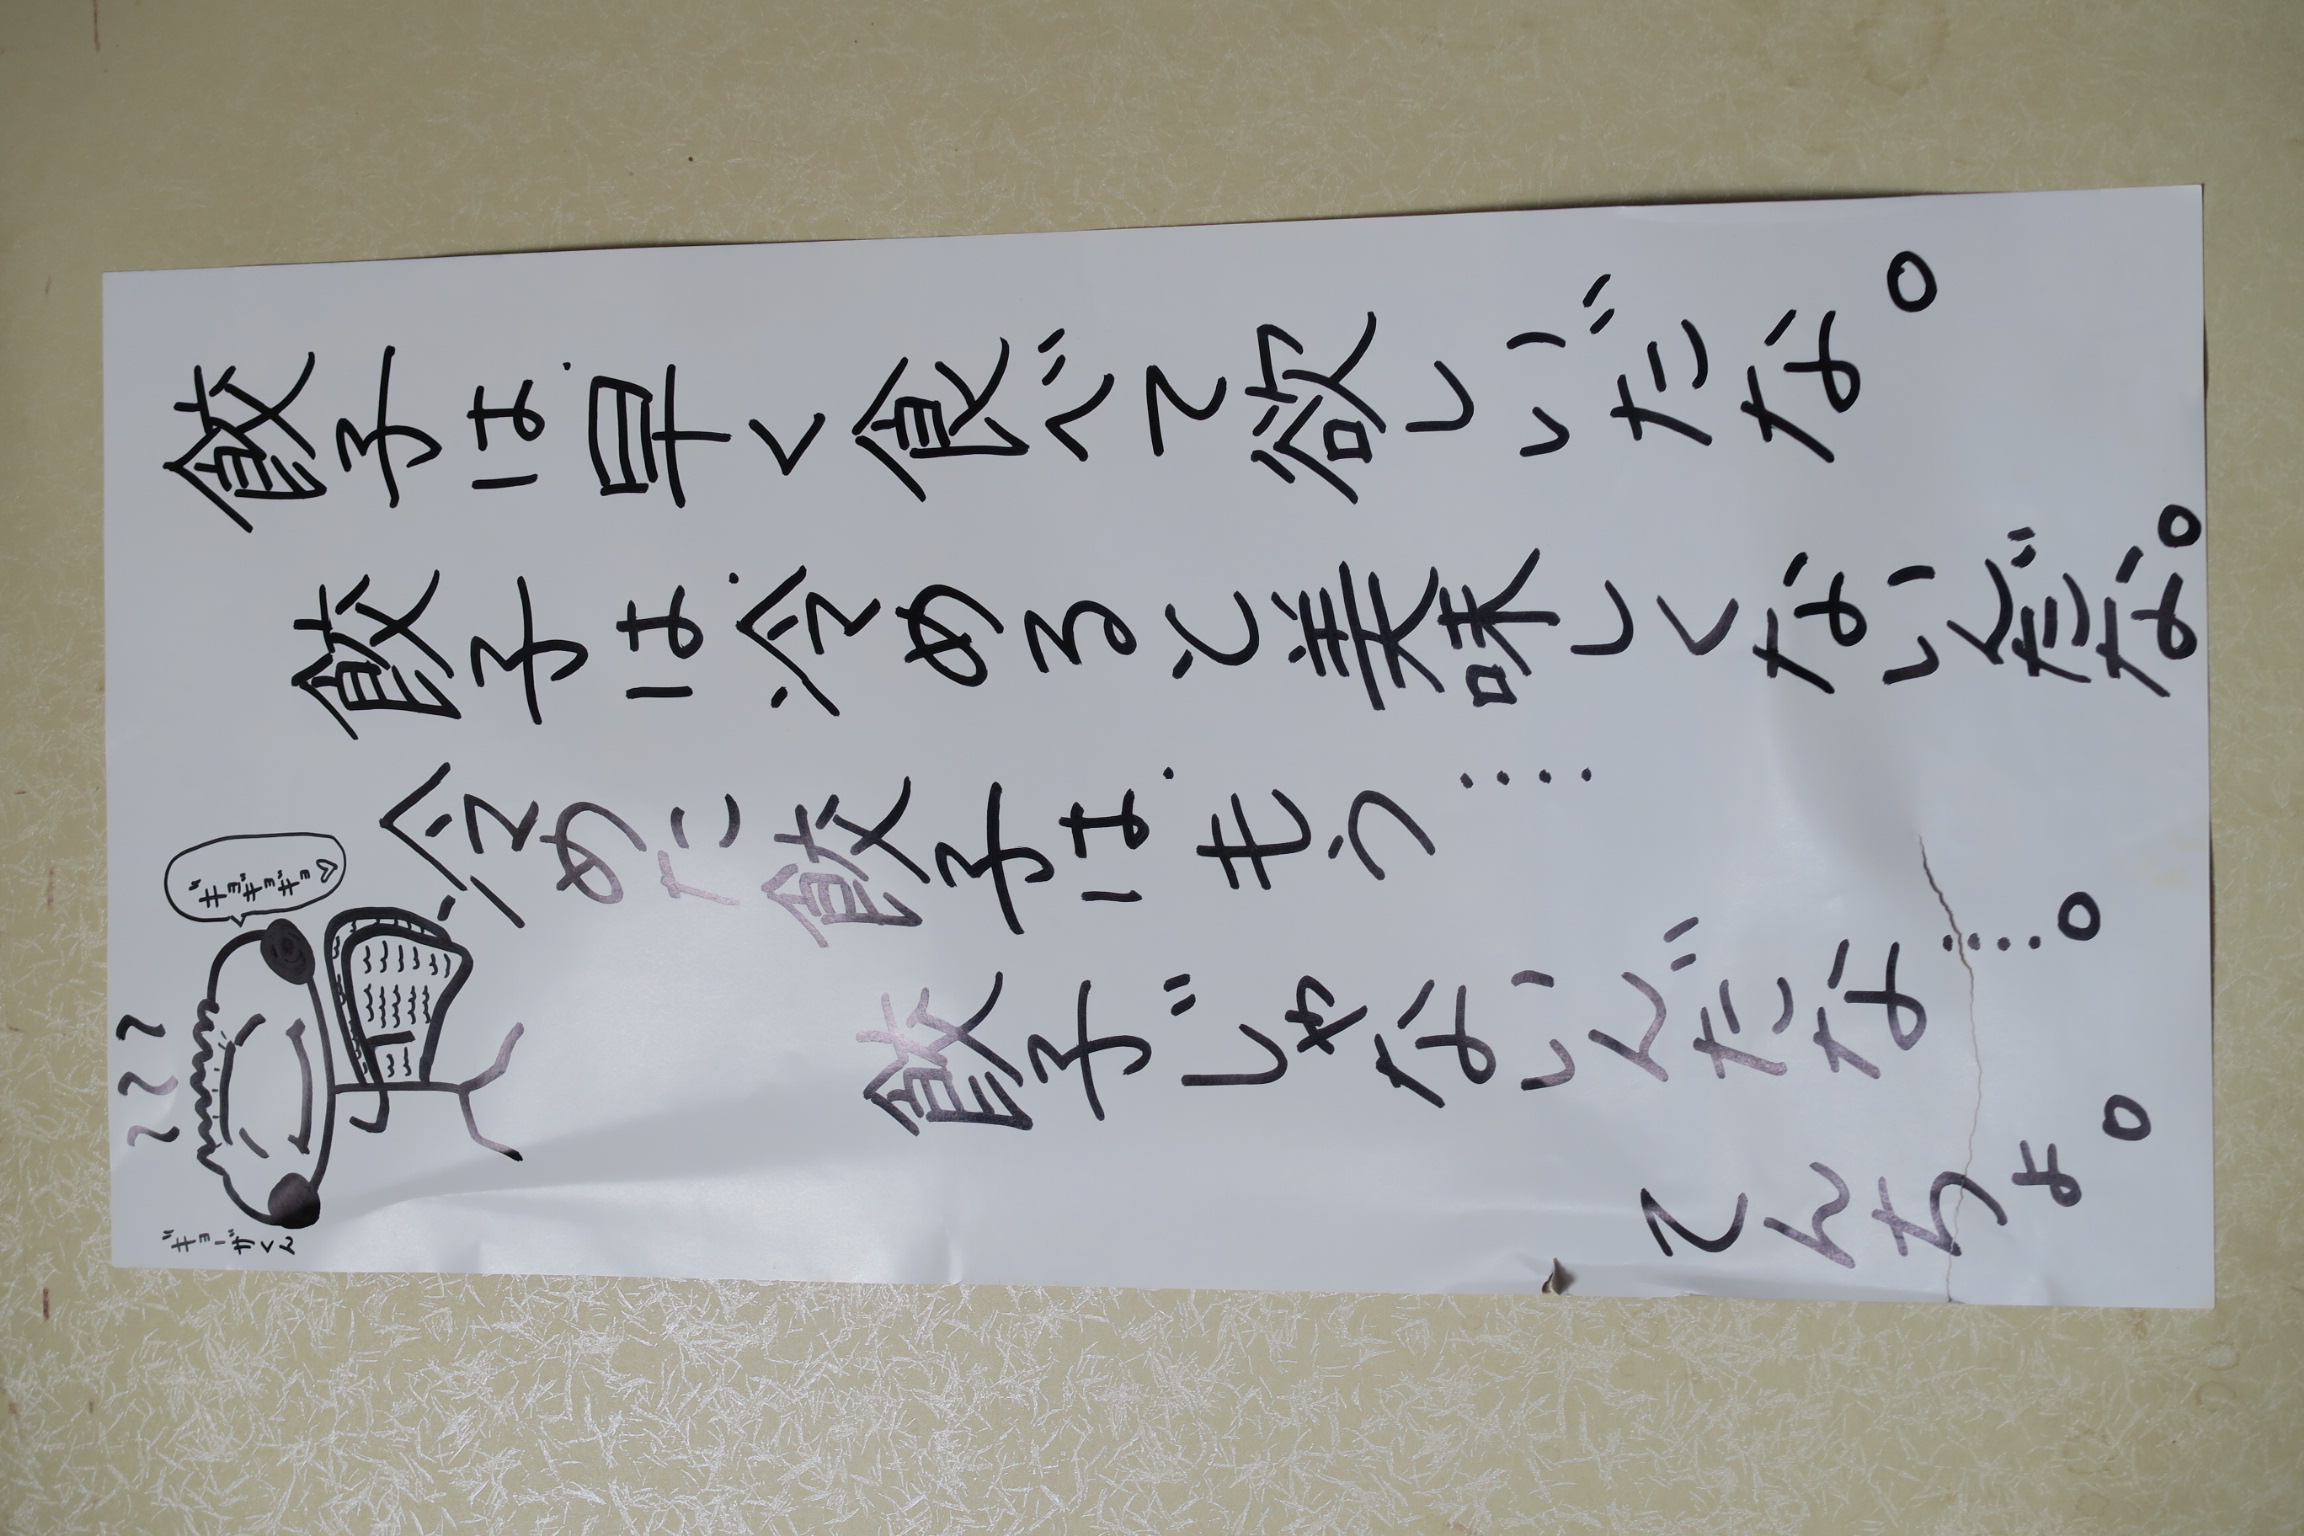 餃子は、早く食べて欲しいだな。
餃子は、冷めると美味しくないんだな。
冷めた餃子は、もう‥‥
餃子じゃないんだな‥‥。
てんちょ。
ギョギョギョ♡
ギョーザくん